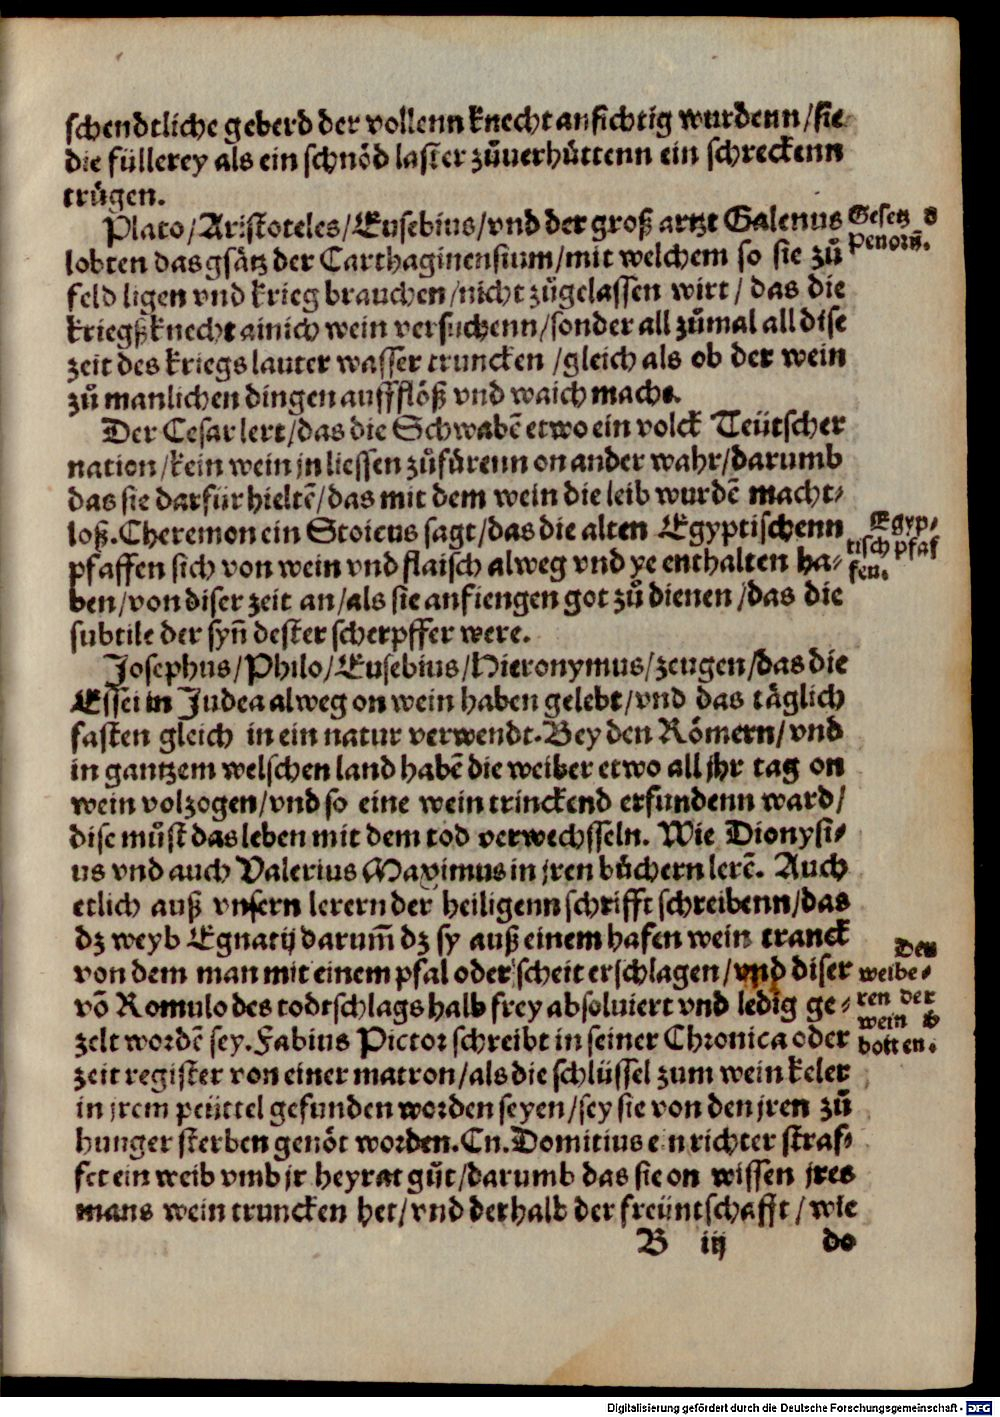 schendtliche geberd der vollenn knecht ansichtig wurdenn/sie
die füllerey als ein schnöd laster zůuerhüttenn ein schreckenn
trůgen.
Plato/Aristoteles/Eusebius/vnd der groß artzt Galenus
lobten das gsätz der Carthaginensium/mit welchem so sie zů
feld ligen vnd krieg brauchen/nicht zůgelassen wirt/das die
kriegßknecht ainich wein versuchenn/sonder all zůmal all dise
zeit des kriegs lauter wasser truncken/gleich als ob der wein
zů manlichen dingen auffflöß vnd waich mache.
Gesetz d
Penorū.
Der Cesar lert/das die Schwabē etwo ein volck Teütscher
nation/kein wein jn liessen zůfürenn on ander wahr/darumb
das sie darfür hieltē/das mit dem wein die leib wurdē macht-
loß. Cheremon ein Stoicus sagt/das die alten Egyptischenn
pfaffen sich von wein vnd flaisch alweg vnd ye enthalten ha-
ben/von diser zeit an/als sie anfiengen got zů dienen/das die
subtile der syn̄ dester scherpffer were.
Egyp-
tisch pfaf
fen.
Josephus/Philo/Eusebius/Hieronymus/zeugen/das die
Essei in Judea alweg on wein haben gelebt/vnd das täglich
fasten gleich in ein natur verwendt. Bey den Römern/vnd
in gantzem welschen land habē die weiber etwo all jhr tag on
wein volzogen/vnd so eine wein trinckend erfundenn ward/
dise můst das leben mit dem tod verwechsseln. Wie Dionysi-
us vnd auch Valerius Maximus in jren büchern lerē. Auch
etlich auß vnsern lerern der heiligenn schrifft schreibenn/das
dz weyb Egnatij darum̄ dz sy auß einem hafen wein tranck
von dem man mit einem pfal oder scheit erschlagen/vnd diser
vō Romulo des todtschlags halb frey absoluiert vnd ledig ge-
zelt wordē sey. Fabius Pictor schreibt in seiner Chronica oder
zeit register von einer matron/als die schlüssel zum wein keler
in jrem peüttel gefunden worden seyen/sey sie von den jren zů
hunger sterben genöt worden. Cn. Domitius ein richter straf-
fet ein weib vmb jr heyrat gůt/darumb das sie on wissen jres
mans wein truncken het/vnd derhalb der freüntschafft/wie
Den
weibe-
ren der
wein v
botten.
B iij do
Digitalisierung gefördert durch die Deutsche Forschungsgemeinschaft - DFG